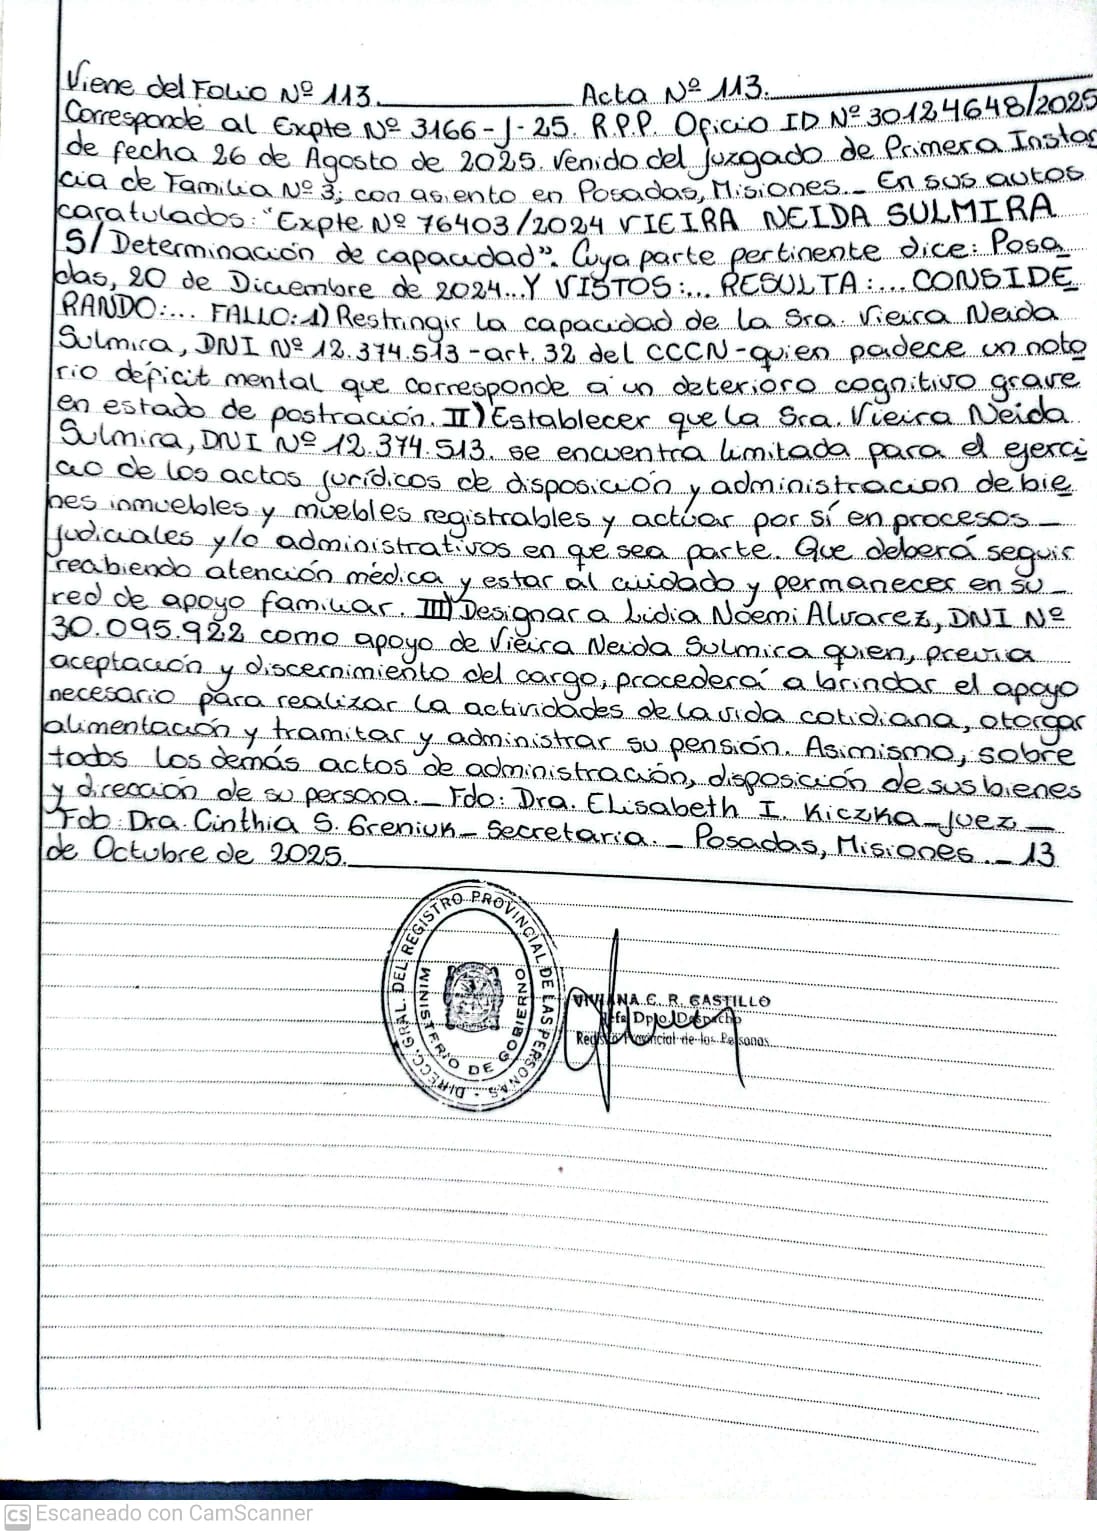 Viene del Folio Nº 113. Acta Nº 113.
Corresponde al Expte Nº 3166-J-25. R.P.P. Oficio ID Nº 30124648/2025
de fecha 26 de Agosto de 2025. Venido del Juzgado de Primera Instan
cia de Familia Nº 3; con asiento en Posadas, Misiones._ En sus autos
caratulados: "Expte Nº 76403/2024 VIEIRA NEIDA SULMIRA
S/ Determinación de capacidad". Cuya parte pertinente dice: Posa
das, 20 de Diciembre de 2024...Y VISTOS:... RESULTA:... CONSIDE
RANDO:... FALLO: 1) Restringir la capacidad de la Sra. Vieira Neida
Sulmira, DNI Nº 12.374.513 -art. 32 del CCCN- quien padece un noto
rio déficit mental que corresponde a un deterioro cognitivo grave
en estado de postración. II) Establecer que la Sra. Vieira Neida
Sulmira, DNI Nº 12.374.513. se encuentra limitada para el ejerci
cio de los actos jurídicos de disposición y administracion de bie
nes inmuebles y muebles registrables y actúar por sí en procesos _
judiciales y/o administrativos en que sea parte. Que deberá seguir
reabiendo atención médica y estar al cuidado y permanecer en su _
red de apoyo familiar. III) Designar a Lidia Noemi Alvarez, DNI Nº
30.095.922 como apoyo de Vieira Neida Sulmira quien, previa
aceptación y discernimiento del cargo, procederá a brindar el apoyo
necesario para realizar la actividades de la vida cotidiana, otorgar
alimentación y tramitar y administrar su pensión. Asimismo, sobre
todos los demás actos de administración, disposición de sus bienes
y dirección de su persona._ Fdo: Dra. Elisabeth I. Kiczka_Juez _
Fdo: Dra. Cinthia S. Greniuk _ Secretaria. _ Posadas, Misiones._ 13
de Octubre de 2025.
DIRECC. GRAL. DEL REGISTRO PROVINCIAL DE LAS PERSONAS -
MINISTERIO DE GOBIERNO
VIVIANA C. R. CASTILLO
Jefa Dpto. Despacho
Registro Provincial de las Personas
CS Escaneado con CamScanner